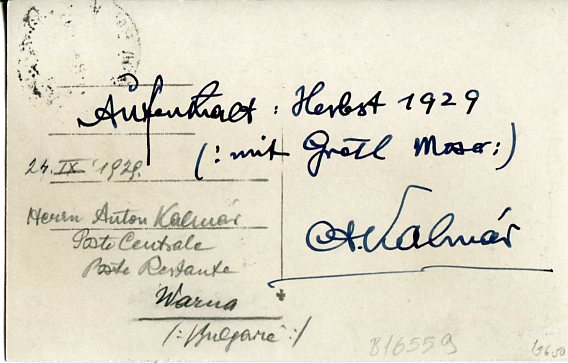 Aufenthalt : Herbst 1929
(: mit Gretl Moser :)
24. IX 1929.
Herrn Anton Kalmár
Poste Centrale
Poste Restante
Warna
/: Bulgarie :/
A. Kalmár
B16559